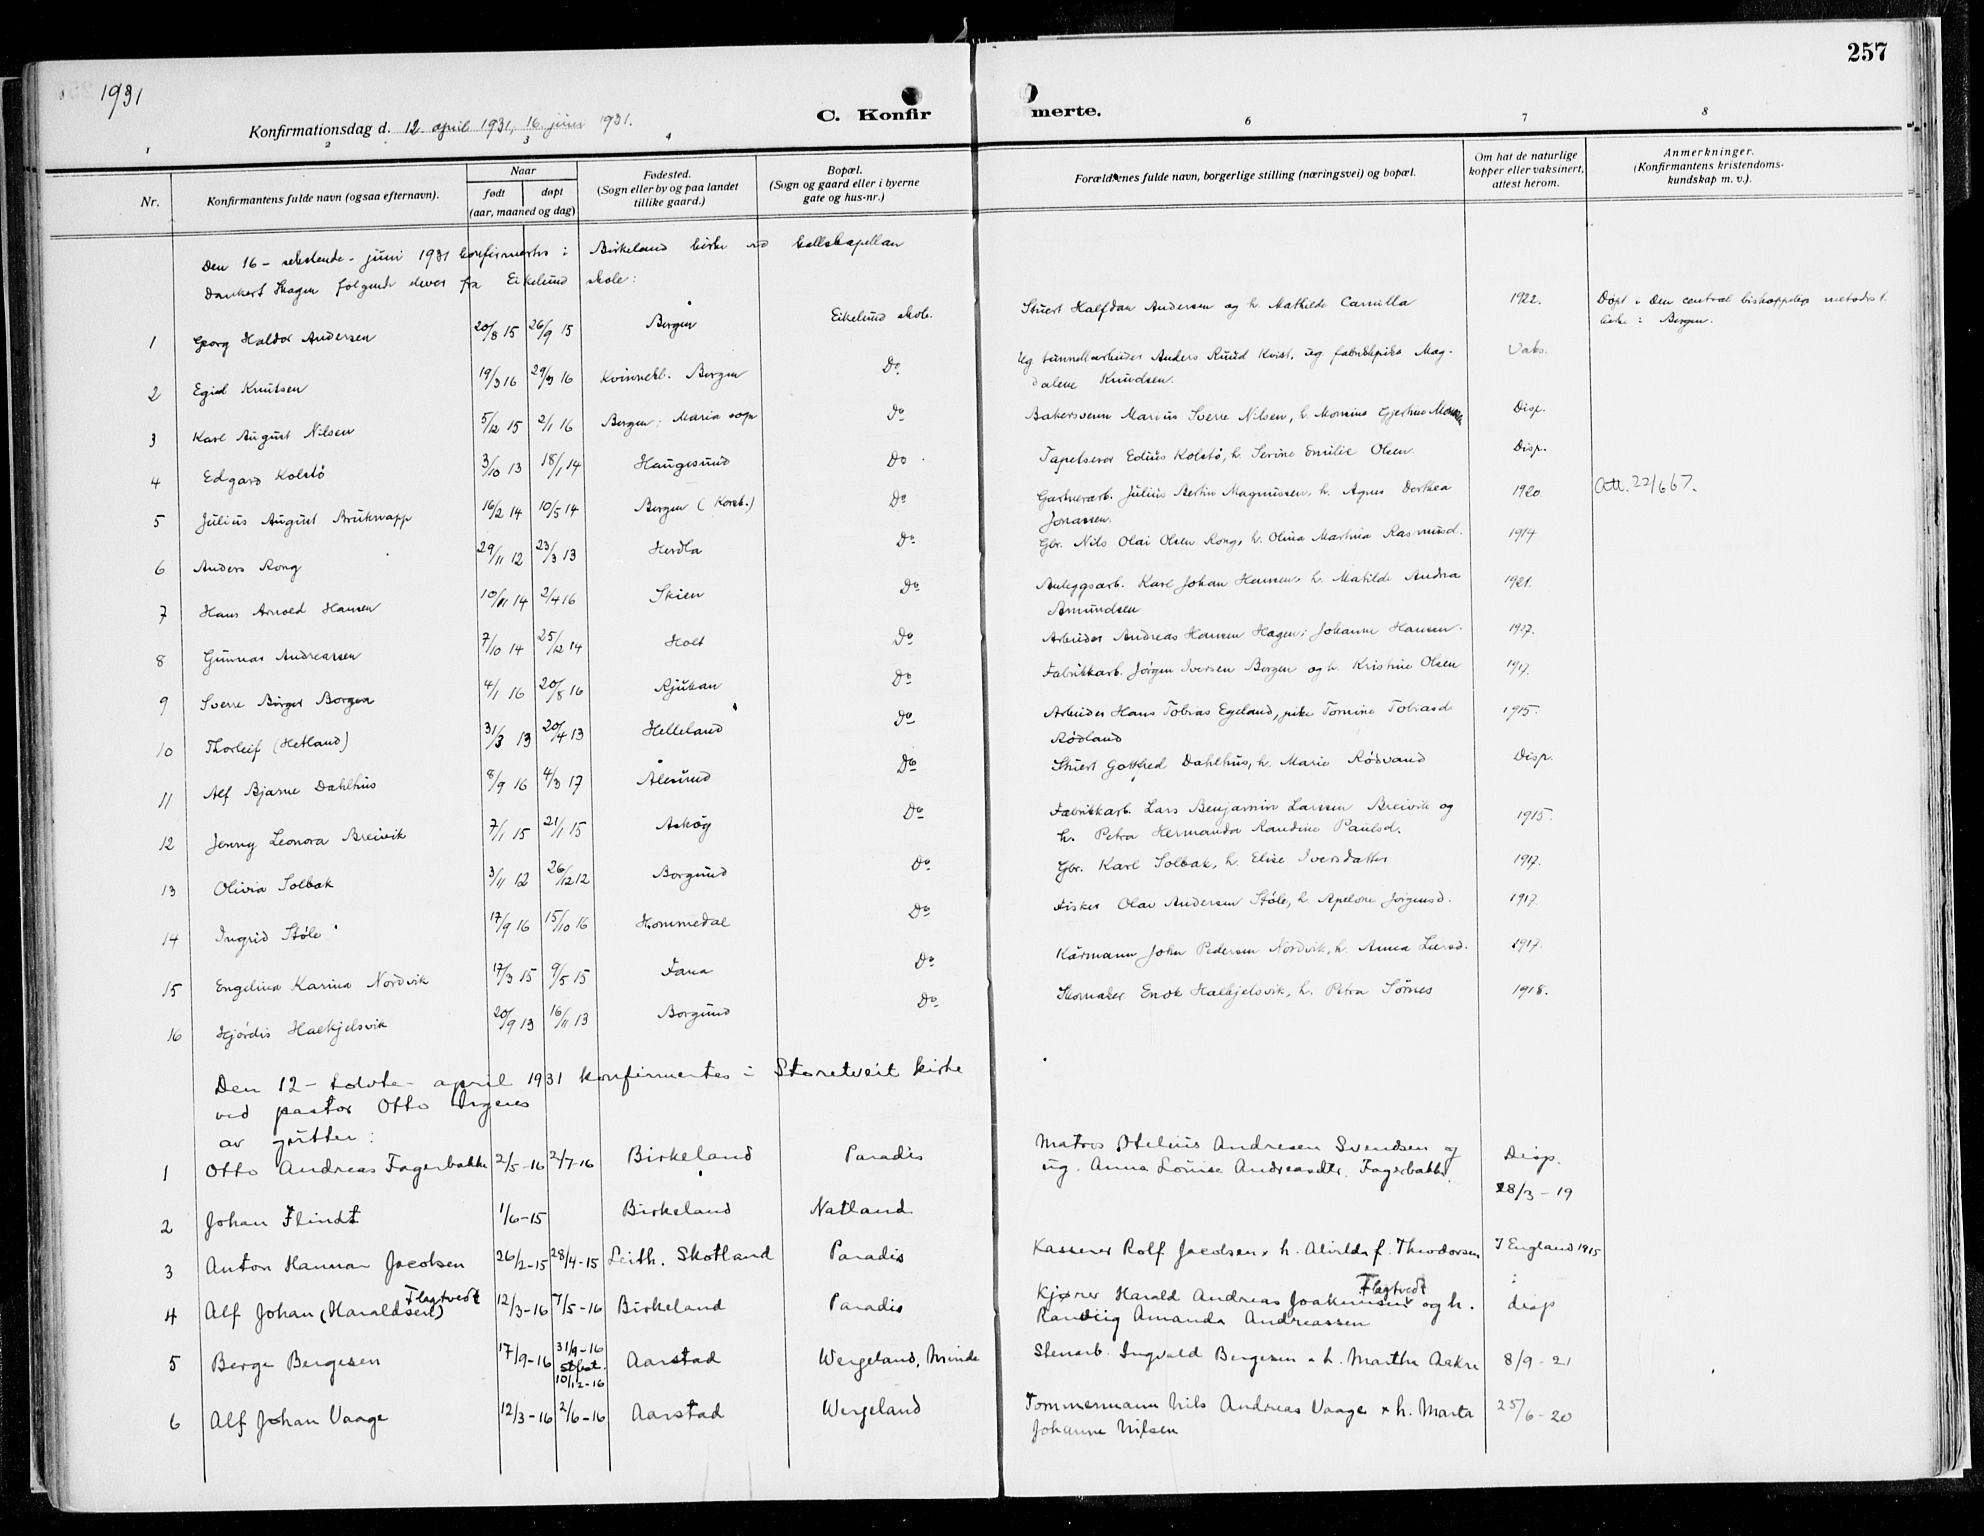 1931
257
Konfirmationsdag d. 12. april 1931, 16. juni 1931.
C. Konfir merte.
1 2 3 4 6 7 8
Nr. Konfirmantens fulde navn (ogsaa efternavn). Naar født døpt (aar, maaned og dag) Fødested. (Sogn eller by og paa landet tillike gaard.) Bopæl. (Sogn og gaard eller i byerne gate og hus-nr.) Forældrenes fulde navn, borgerlige stilling (næringsvei) og bopæl. Om hat de naturlige kopper eller vaksinert, attest herom. Anmerkninger. (Konfirmantens kristendomskundskap m. v.).
Den 16 - sekstende - juni 1931 konfirmertes i Birkeland kirke ved kallskapellan
Dankert Skagen følgende elever fra Eikelund skole:
1 Georg Haldor Andersen 20/8 15 26/9 15 Bergen Eikelund skole. Stuert Halfdan Andersen og h. Mathilde Camilla 1922. Døpt i Den central biskoppelige metodist. kirke i Bergen.
2 Egil Knutsen 19/3 16 29/3 16 Kvinnekl. Bergen Do Ug tunnelarbeider Anders Ruud Kvist, ug fabrikpike Mag-
dalene Knudsen. Vaks.
3 Karl August Nilsen 5/12 15 2/1 16 Bergen: Maria sogn Do Bakersvenn Marius Sverre Nilsen, h. Monsine Gjertine Disp.
4 Edgard Kolstø 3/10 13 18/1 14 Haugesund Do Tapetserer Edius Kolstø, h. Serine Emilie Olsen. Disp.
5 Julius August Bruknapp 16/2 14 10/5 14 Bergen (Korsk.) Do Gartnerarb. Julius Bertin Magnussen, h. Agnes Dorthea
Jonassen. 1920 Att. 22/6 67.
6 Anders Rong 29/11 12 23/3 13 Herdla Do Gbr. Nils Olai Olsen Rong, h. Olina Martina Rasmusd. 1914
7 Hans Arnold Hansen 10/11 14 2/4 16 Skien Do Anleggsarb. Karl Johan Hansen, h. Matilde Andrea
Amundsen 1921.
8 Gunnar Andreassen 7/10 14 25/12 14 Holt Do Arbeider Andreas Hansen Hagen; Johanne Hansen. 1927.
9 Sverre Birger Borgen 4/1 16 20/8 16 Rjukan Do Fabrikkarb. Jørgen Iversen Borgen og h. Kristine Olsen 1917.
10 Thorleif (Hetland) 31/3 13 20/4 13 Helleland Do Arbeider Hans Tobias Egeland, pike Tomine Tobiasd.
Rødland 1915.
11 Alf Bjarne Dahlhus 8/9 16 4/3 17 Ålesund Do Stuert Gotthed Dahlhus, h. Marie Rødsvand Disp.
12 Jenny Leonora Breivik 7/1 15 21/1 15 Askøy Do Fabrikkarb. Lars Benjamin Larsen Breivik og
h. Petra Hermanda Randine Paulsd. 1915.
13 Olivia Solbak 3/11 12 26/12 12 Borgund Do Gbr. Karl Solbak, h. Elise Iversdatter 1917.
14 Ingrid Støle 17/9 16 15/10 16 Hommedal Do Fisker Olav Andersen Støle, h. Apelone Jørgensd. 1917.
15 Engelina Karina Nordvik 17/3 15 9/5 15 Fana Do Kårmann John Pedersen Nordvik, h. Anna Larsd. 1917.
16 Hjørdis Halkjelsvik 20/9 13 16/11 13 Borgund Do Skomaker Enok Halkjelsvik, h. Petra Sørnes 1918.
Den 12 - tolvte - april 1931 konfirmertes i Storetveit kirke
ved pastor Otto Irgens
av gutter:
1 Otto Andreas Fagerbakke 2/5-16 2/7-16 Birkeland Paradis Matros Otelius Andresen Svendsen og
ug. Anna Louise Andreasdtr. Fagerbakke. Disp.
2 Johan Flindt 1/6-15 Birkeland Natland 28/3-19
3 Anton Hannan Jacobsen 26/2-15 28/4-15 Leith. Skotland Paradis Kasserer Rolf Jacobsen x h. Alvilda f. Theodorsen I England 1915
4 Alf Johan (Haraldsen) Flagtvedt 12/3-16 7/5-16 Birkeland Paradis Kjører Harald Andreas Joakimsen Flagtvedt og h.
Randiig Amanda Andreassen disp
5 Berge Bergesen 17/9-16 31/9-16 stfest. 10/12-16 Aarstad Wergeland, Minde Stenarb. Ingvald Bergesen x h. Martha Aakre 8/9-21
6 Alf Johan Vaage 12/3-16 2/6-16 Aarstad Wergeland Tømmermann Nils Andreas Vaage x h. Marta
Johanne Nilsen 25/6-20